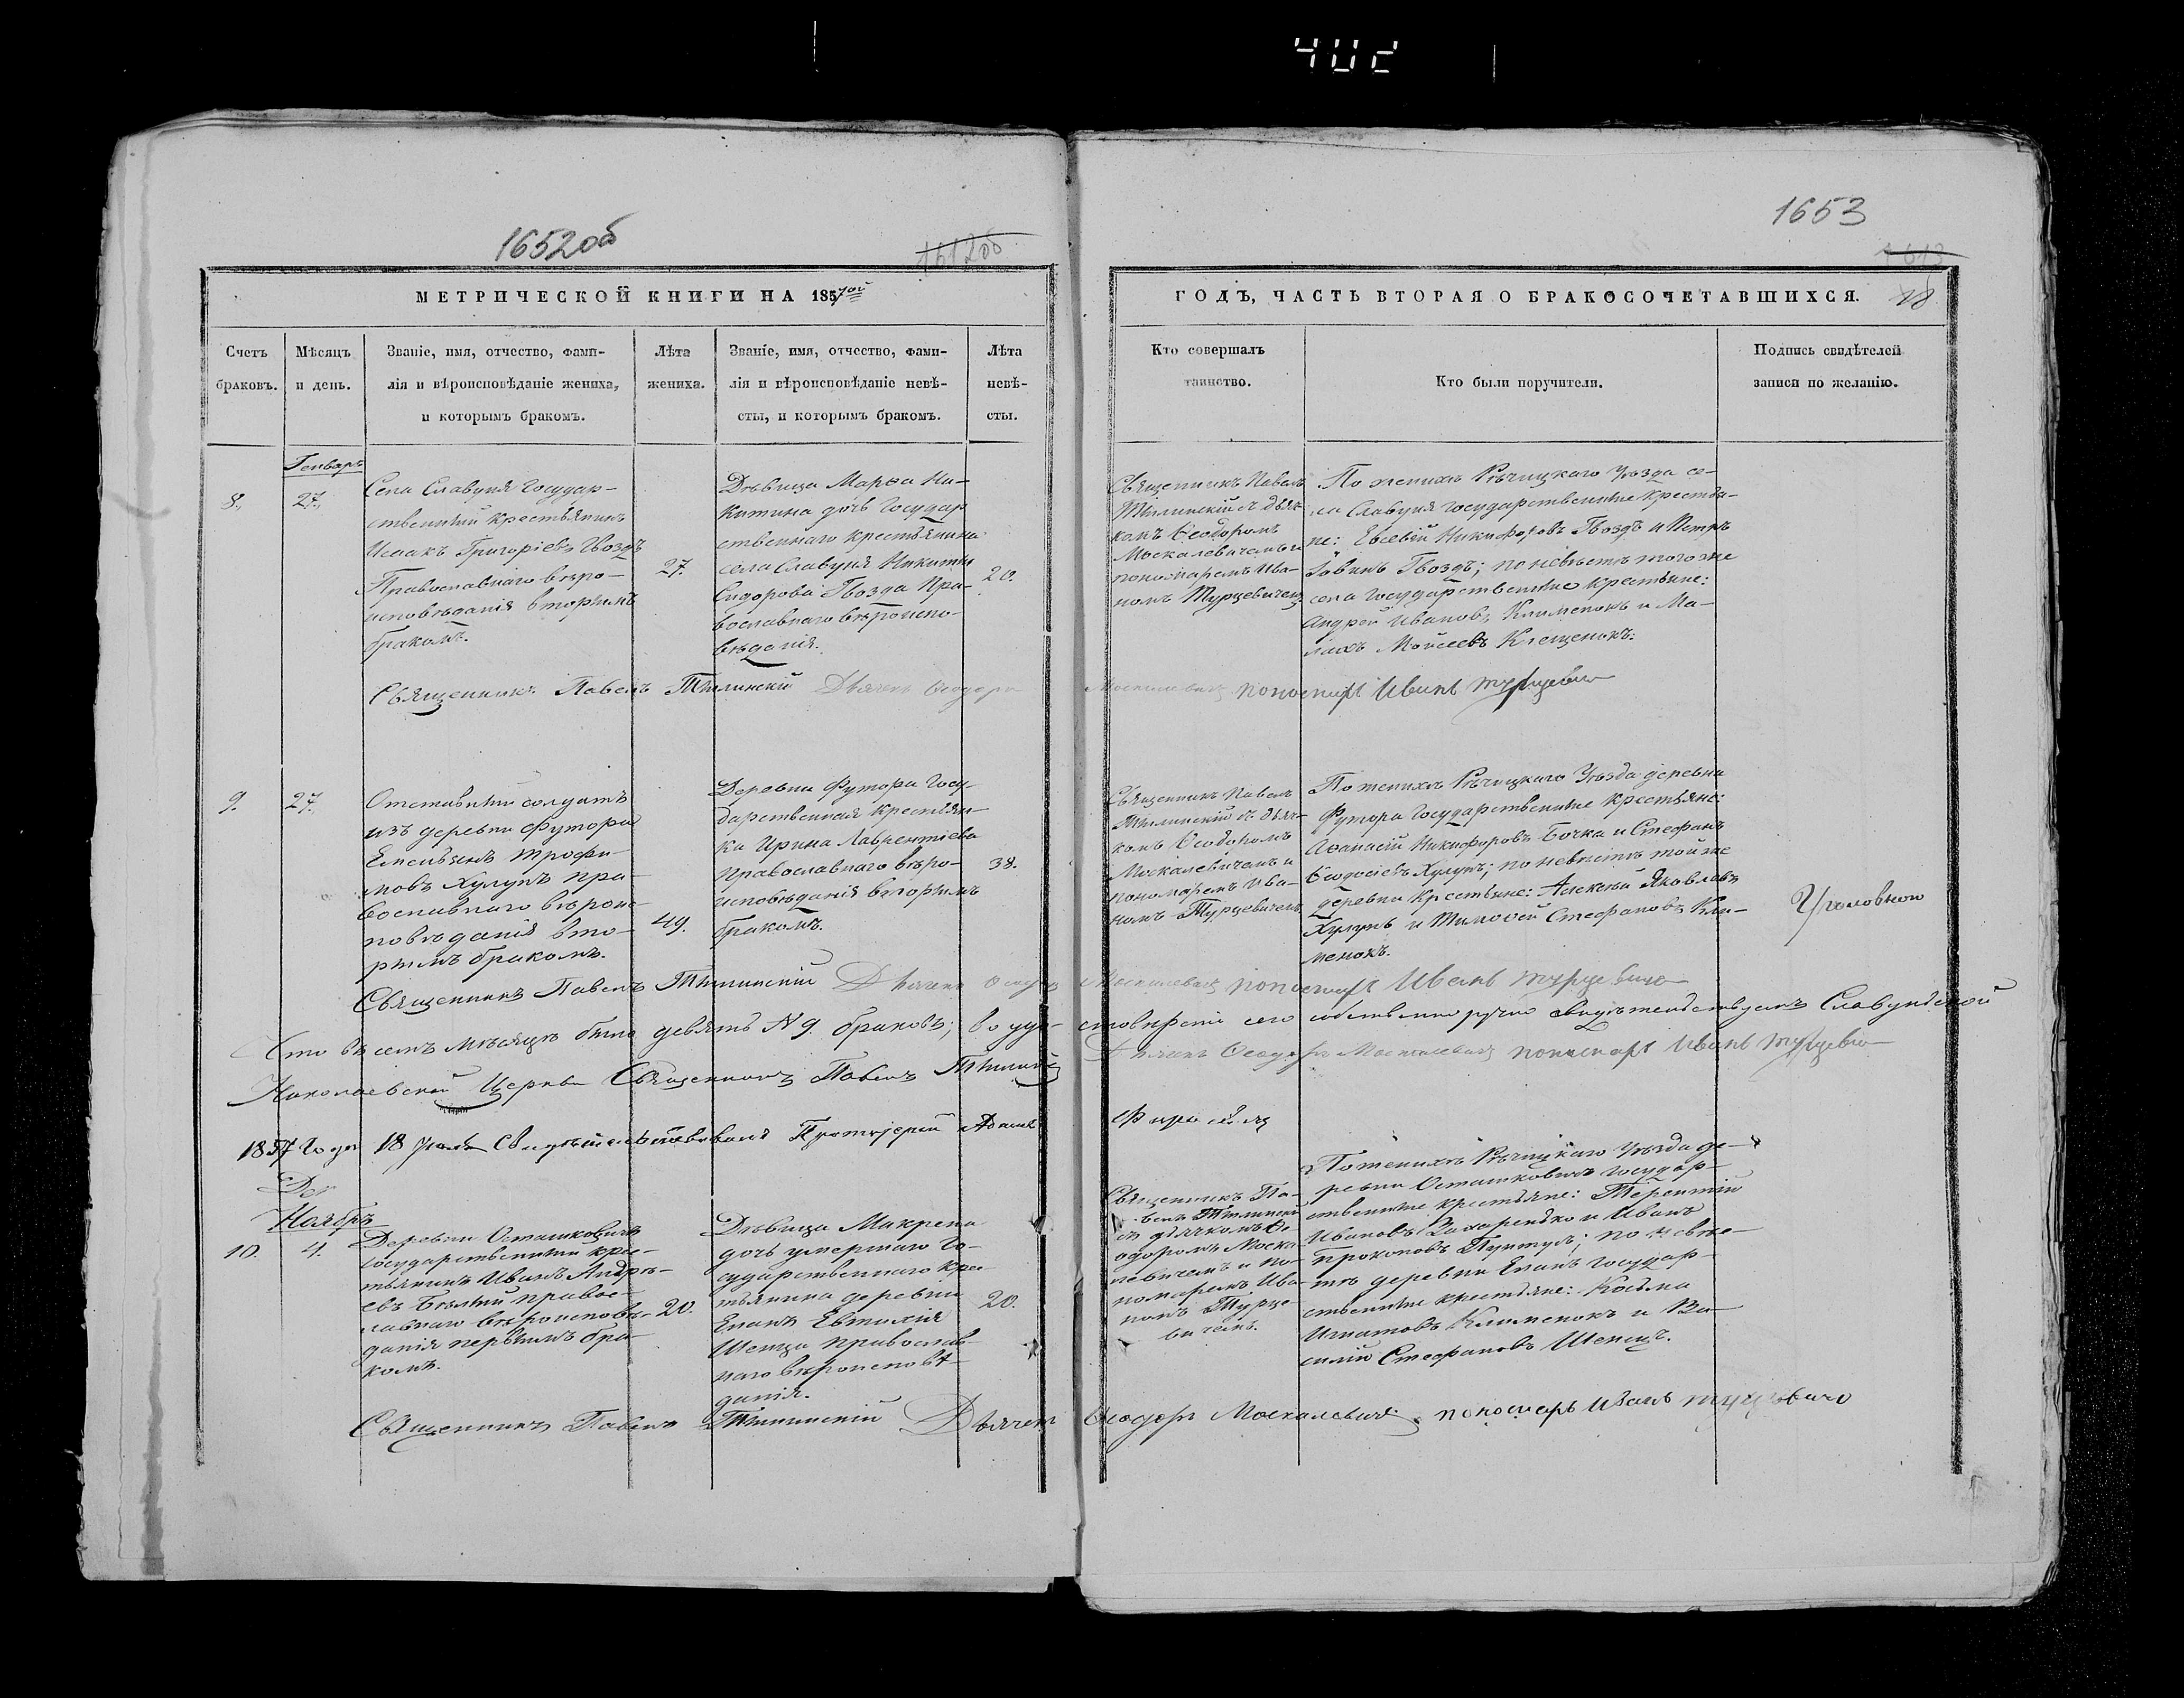 402
1652 об
1612 об
1653
1613
МЕТРИЧЕСКОЙ КНИГИ НА 1857ой
ГОДЪ, ЧАСТЬ ВТОРАЯ О БРАКОСОЧЕТАВШИХСЯ.
18
Счетъ
браковъ.
Мѣсяцъ
и день.
Званіе, имя, отчество, фами-
лія и вѣроисповѣданіе жениха,
и которымъ бракомъ.
Лѣта
жениха.
Званіе, имя, отчество, фами-
лія и вѣроисповѣданіе невѣ-
сты, и которымъ бракомъ.
Лѣта
невѣ-
сты.
Кто совершалъ
таинство.
Кто были поручители.
Подпись свидѣтелей
записи по желанію.
Генварь
8.
27.
Села Славуня Государ-
ственный крестьянинъ
Исаакъ Григоріевъ Гвоздъ
Православнаго вѣро-
исповѣданія вторымъ
бракомъ.
27.
Дѣвица Марѳа Ни-
китина дочь Государ
ственнаго крестьянина
села Славуня Никиты
Сидорова Гвозда Пра-
вославнаго вѣроиспо-
вѣданія.
20.
Священникъ Павелъ
Тылинскій съ дьяч-
комъ Ѳеодоромъ
Москалевичемъ и
пономаремъ Ива-
номъ Турцевичемъ
По женихѣ Рѣчицкаго Уѣзда се-
ла Славуня Государственные крестья-
не: Евсевій Никифоровъ Гвоздъ и Петръ
Гвоздъ; по невѣстѣ того же
села Государственные крестьяне:
Андрей Ивановъ Клименокъ и Ма-
лахъ Мойсеевъ Клещенокъ:
Священникъ Павелъ Тылинскій Дьячекъ Ѳеодоръ Москалевичъ пономарь Иванъ Турцевичъ
9.
27.
Отставный солдатъ
изъ деревни Футора
Емельянъ Трофи-
мовъ Хулупъ пра-
вославнаго вѣроис-
повѣданія вто-
рымъ бракомъ.
49.
Деревни Футора Госу-
дарственная крестьян-
ка Ирина Лаврентіева
православнаго вѣро-
исповѣданія вторымъ
бракомъ.
38.
Священникъ Павелъ
Тылинскій съ дьяч-
комъ Ѳеодоромъ
Москалевичемъ и
пономаремъ Ива-
номъ Турцевичемъ
По женихѣ Рѣчицкаго Уѣзда деревни
Футора Государственные крестьяне:
Аѳанасій Никифоровъ Бочка и Стефанъ
Ѳеодосіевъ Хулупъ; по невѣстѣ той же
деревни крестьяне: Алексѣй Яковлевъ
Хулупъ и Тимоѳей Стефановъ Кли-
менокъ.
Священникъ Павелъ Тылинскій Дьячекъ Ѳеодоръ Москалевичъ пономарь Иванъ Турцевичъ
Что въ семъ мѣсяцѣ было девять N 9. браковъ; во удо- стовѣреніе сего собственноручно свидѣтельствуемъ Славунской
Николаевской Церкви Священникъ Павелъ Тылинскій Дьячекъ Ѳеодоръ Москалевичъ пономарь Иванъ Турцевичъ
1857 Года 18 Свидѣтельствовалъ Протоіерей
Ноябрь
10.
4.
Деревни Осташковичъ
Государственный кре-
стьянинъ Иванъ Андре-
евъ Бѣлый правос-
лавнаго вѣроисповѣ-
данія первымъ бра-
комъ.
20.
Дѣвица Макрена
дочь умершаго Го-
сударственнаго кре-
стьянина деревни
Еланъ Евтихія
Шепца православ-
наго вѣроисповѣ-
данія.
20.
Священникъ Па-
велъ Тылинскій
съ дьячкомъ Ѳе-
одоромъ Моска-
левичемъ и по-
номаремъ Ива-
номъ Турце-
вичемъ.
По женихѣ Рѣчицкаго Уѣзда де-
ревни Осташковичъ Государ-
ственные крестьяне: Терентій
Ивановъ Захаренко и Иванъ
Прокоповъ Пунтусъ; по невѣс-
тѣ деревни Еланъ Государ-
ственные крестьяне: Косьма
Игнатовъ Клименокъ и Ва-
силій Стефановъ Шепецъ.
Священникъ Павелъ Тылинскій Дьячекъ Ѳеодоръ Москалевичъ пономарь Иванъ Турцевичъ